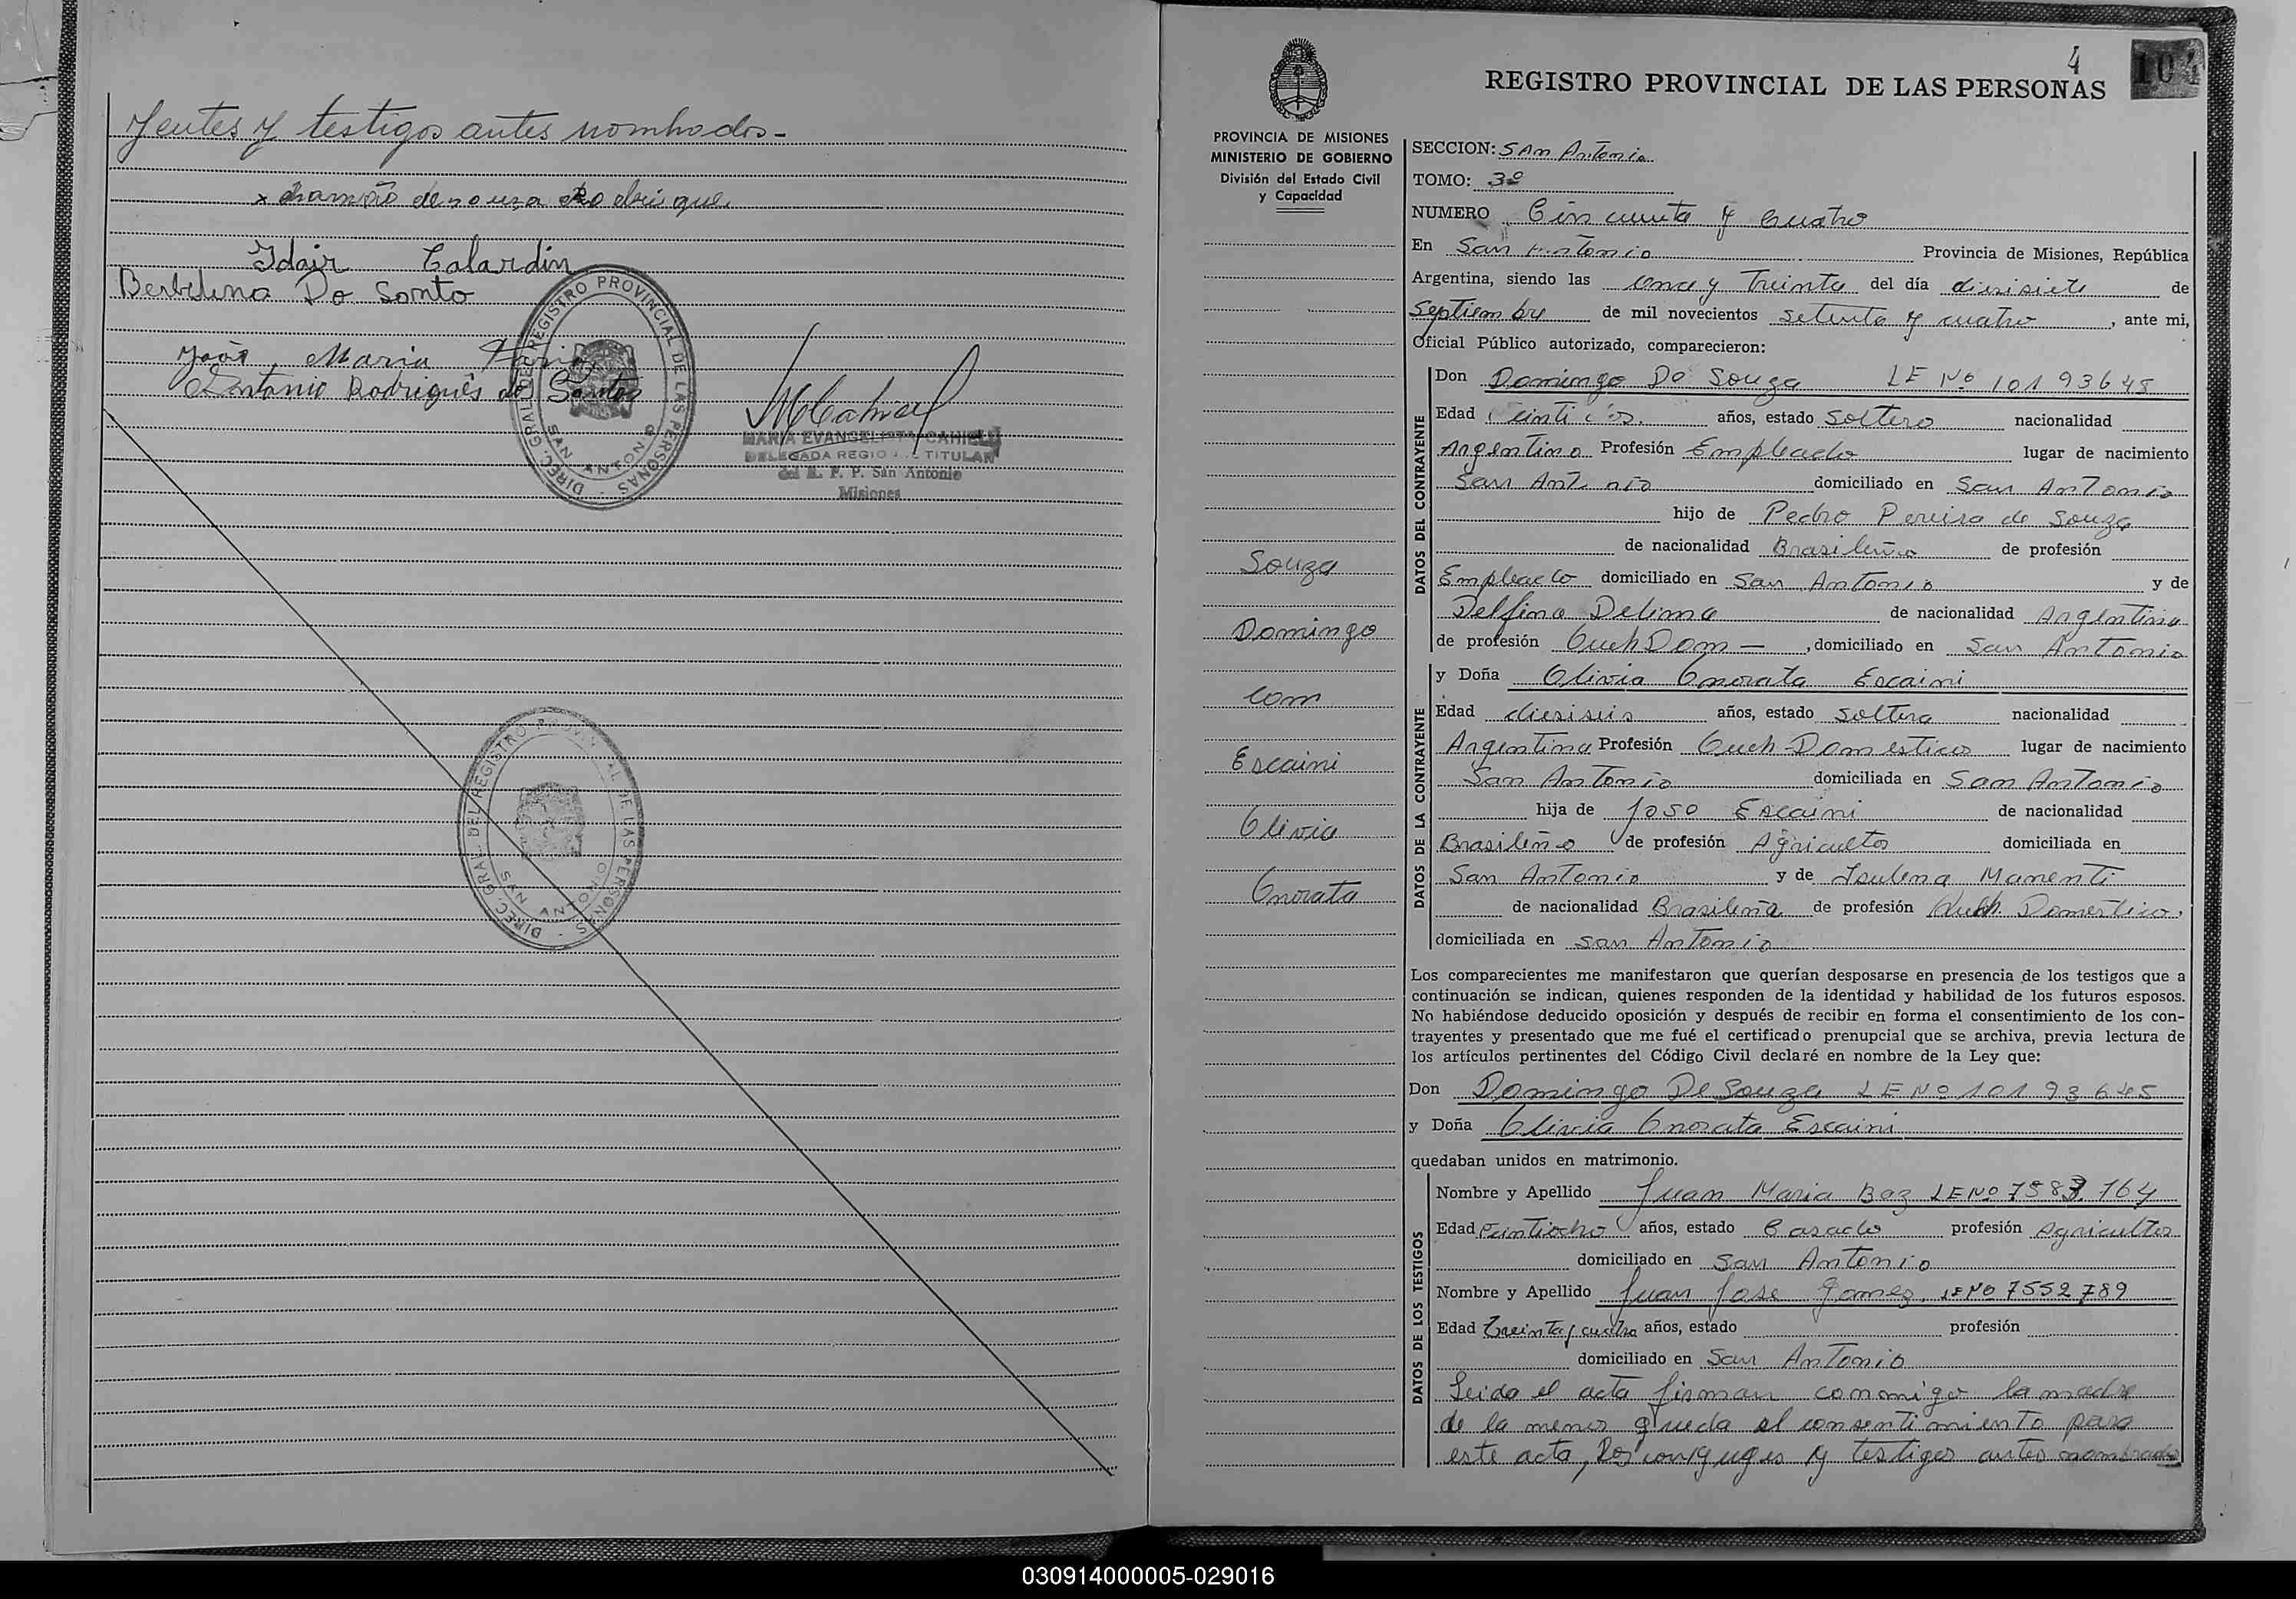 yentes y testigos antes nombrados-
x de souza Rodrigues
Idair Calardin
Berbelina Do Santo
João Maria
Antonio Rodrigues dos Santos
DIREC. GRAL. DEL REGISTRO PROVINCIAL DE LAS PERSONAS
SAN ANTONIO
MARIA EVANGELISTA
DELEGADA REGIONAL TITULAR
del R. P. P. San Antonio
Misiones
DIREC. GRAL. DEL REGISTRO PROVINCIAL DE LAS PERSONAS
SAN ANTONIO
4
104
REGISTRO PROVINCIAL DE LAS PERSONAS
PROVINCIA DE MISIONES
MINISTERIO DE GOBIERNO
División del Estado Civil
y Capacidad
Souza
Domingo
con
Escaini
Olivia
Onorata
SECCION: San Antonio
TOMO: 3º
NUMERO Cincuenta y Cuatro
En San Antonio Provincia de Misiones, República
Argentina, siendo las once y Treinta del día diesisiete de
Septiembre de mil novecientos setenta y cuatro, ante mi,
Oficial Público autorizado, comparecieron:
DATOS DEL CONTRAYENTE
Don Domingo De Souza LE Nº 10193645
Edad años, estado Soltero nacionalidad
Argentino Profesión Empleado lugar de nacimiento
San Antonio domiciliado en San Antonio
hijo de Pedro Pereira de Souza
de nacionalidad Brasileño de profesión
Empleado domiciliado en San Antonio y de
Delfina Delima de nacionalidad Argentina
de profesión Queh Dom — , domiciliado en San Antonio
DATOS DE LA CONTRAYENTE
y Doña Olivia Onorata Escaini
Edad diesiseis años, estado Soltera nacionalidad
Argentina Profesión Queh Domestico lugar de nacimiento
San Antonio domiciliada en San Antonio
hija de Joso Escaini de nacionalidad
Brasileño de profesión Agricultor domiciliada en
San Antonio y de Isulena Manenti
de nacionalidad Brasileña de profesión Queh. Domestico,
domiciliada en San Antonio
Los comparecientes me manifestaron que querían desposarse en presencia de los testigos que a
continuación se indican, quienes responden de la identidad y habilidad de los futuros esposos.
No habiéndose deducido oposición y después de recibir en forma el consentimiento de los con-
trayentes y presentado que me fué el certificado prenupcial que se archiva, previa lectura de
los artículos pertinentes del Código Civil declaré en nombre de la Ley que:
Don Domingo De Souza LE Nº 10193645
y Doña Olivia Onorata Escaini
quedaban unidos en matrimonio.
DATOS DE LOS TESTIGOS
Nombre y Apellido Juan Maria Baz LE Nº 7583.164
Edad Veintiocho años, estado Casado profesión Agricultor
domiciliado en San Antonio
Nombre y Apellido Juan Jose Gomez, LE Nº 7552789
Edad Treinta y cuatro años, estado profesión
domiciliado en San Antonio
Leida el acta firman conmigo la madre
de la menor q' rueda el consentimiento para
este acta, los conyuges y testigos antes nombrados
030914000005-029016